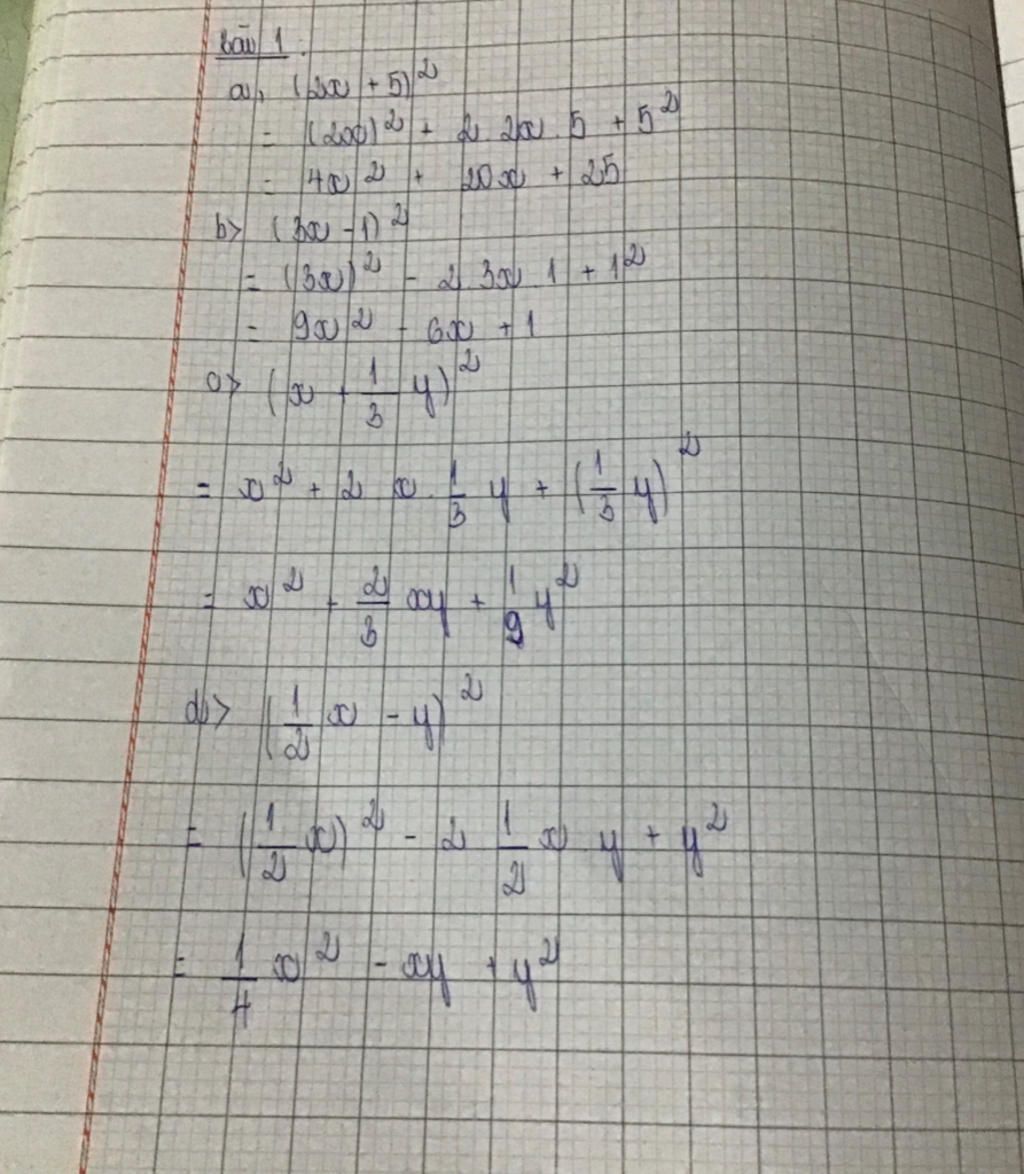 Bài 1:
a, (2x + 5)²
= (2x)² + 2 2x . 5 + 5²
= 4x² + 20x + 25
b> (3x - 1)²
= (3x)² - 2 3x 1 + 1²
= 9x² - 6x + 1
c> (x + 1/3 y)²
= x² + 2 x . 1/3 y + (1/3 y)²
= x² + 2/3 xy + 1/9 y²
d> (1/2 x - y)²
= (1/2 x)² - 2 1/2 x y + y²
= 1/4 x² - xy + y²